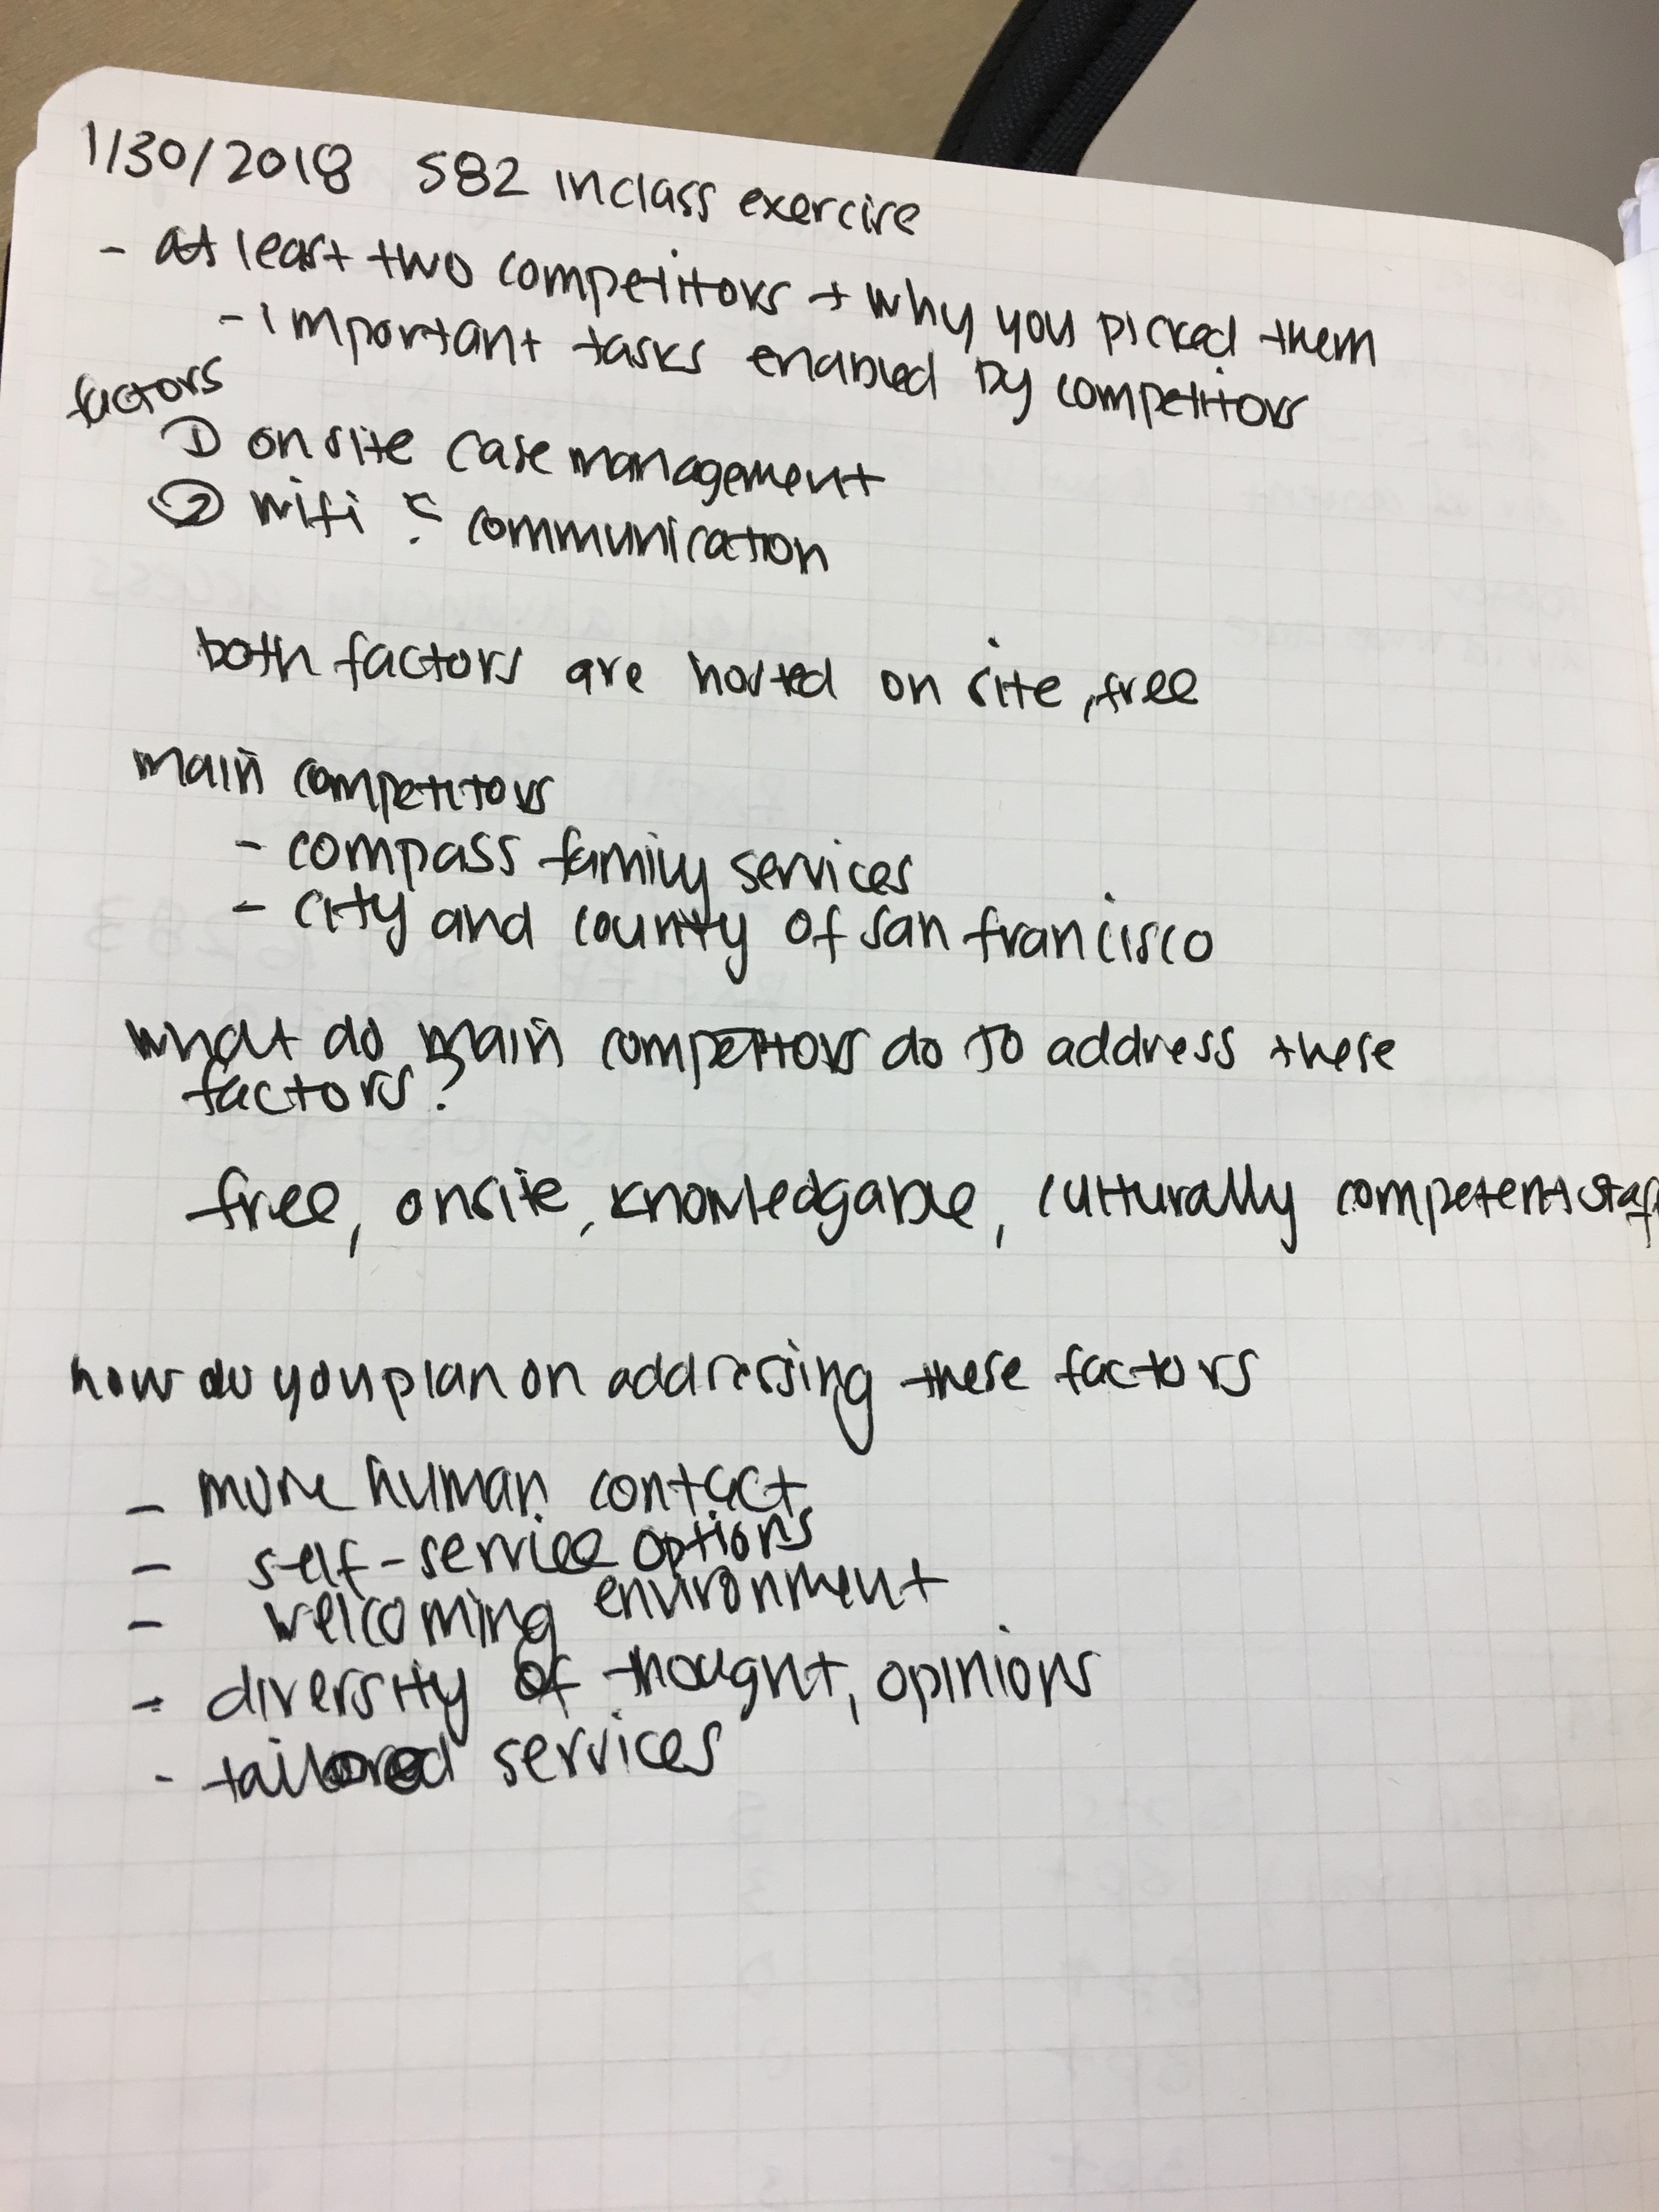 1/30/2018 582 inclass exercise
- at least two competitors + why you picked them
- important tasks enabled by competitors
factors
① onsite case management
② wifi & communication
both factors are hosted on site, free
main competitors
- compass family services
- city and county of san francisco
what do main competitors do to address these
factors?
free, onsite, knowledgable, culturally competent staf
how do you plan on addressing these factors
- more human contact
- self-service options
- welcoming environment
- diversity of thought, opinions
- tailored services